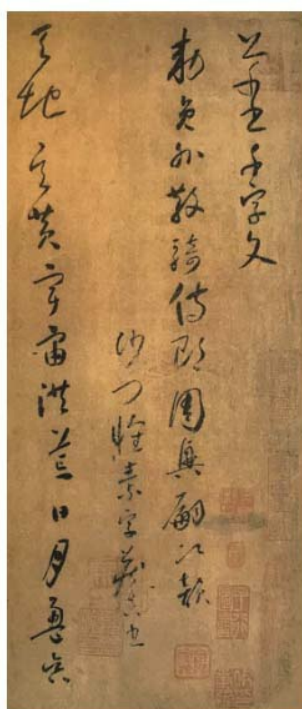 書千字文
勑員外散騎侍郎周興嗣次韻
沙門懷素字藏真書
天地玄黃宇宙洪荒日月盈昃